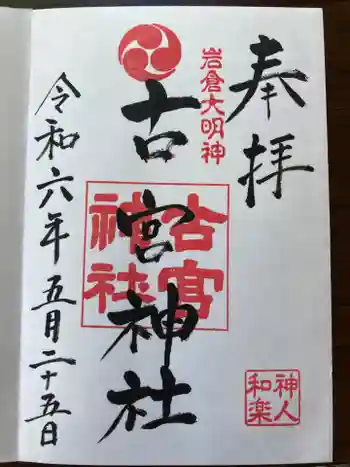 奉拝
岩倉大明神
古宮神社
古宮
神社
神人
和楽
令和六年五月二十五日